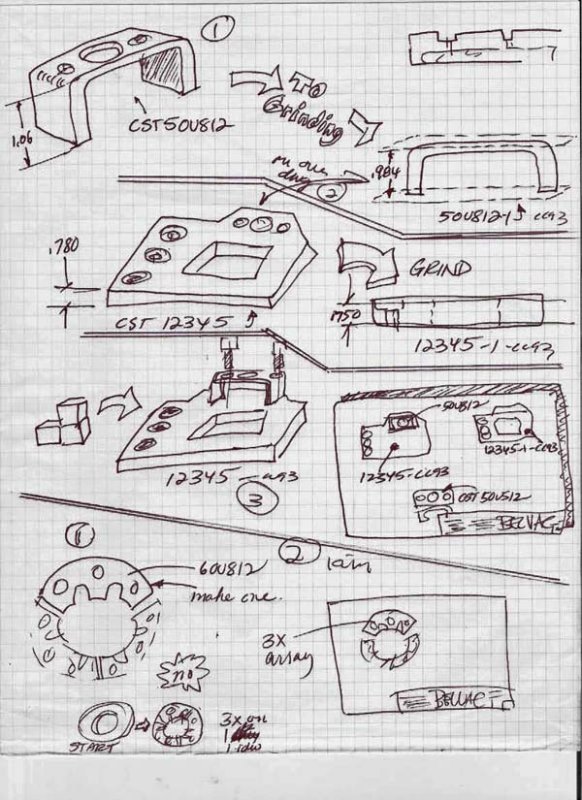 1
1.06
CST 50U812
TO
Grinding
.984
2
50U812-1-cc93
.780
CST 12345
GRIND
.750
12345-1-cc93
12345-cc93
3
50U812
12345-cc93
12345-1-cc93
CST 50U812
BELVAC
1
60U812
make one.
2
no
START
3X on
1 idw
3X
array
BELVAC